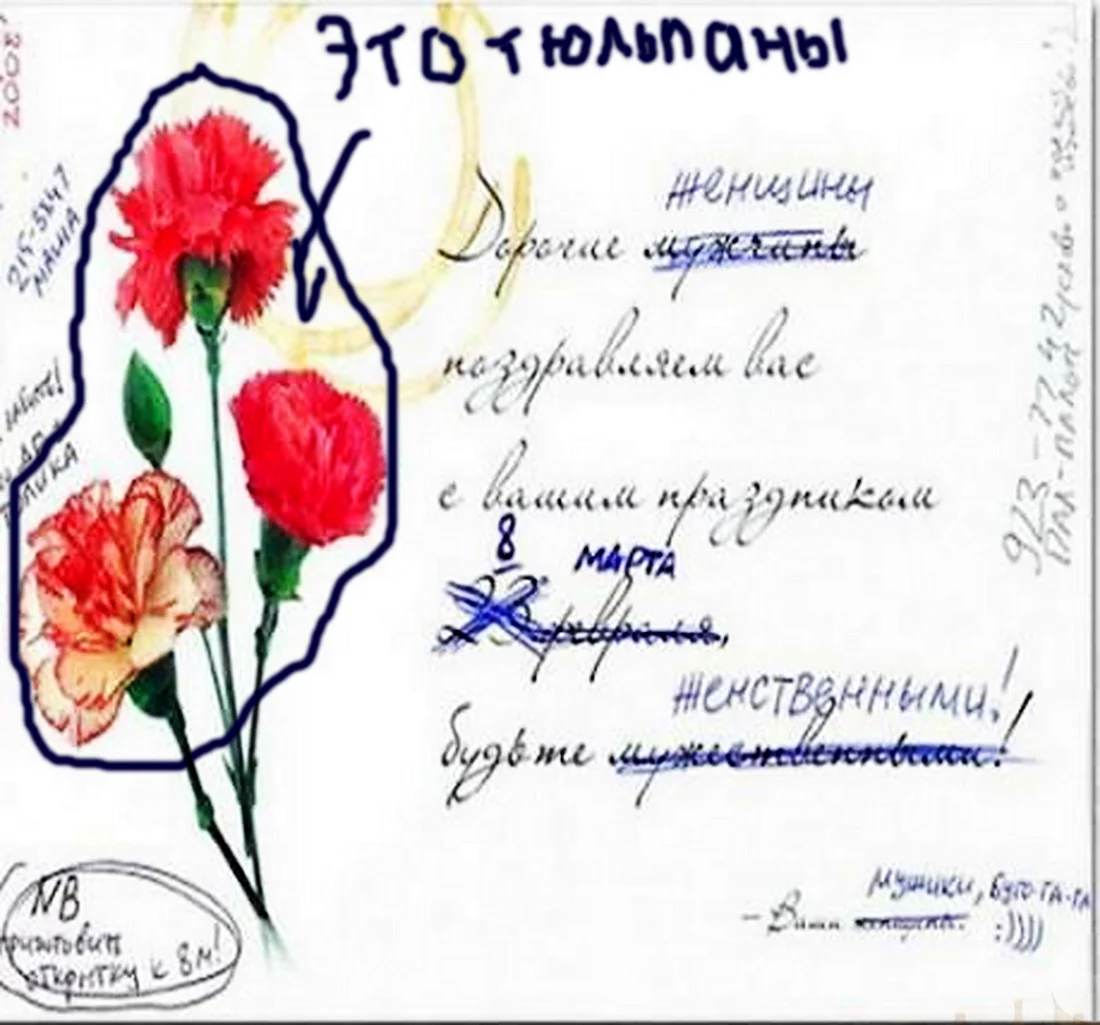 ЭТО ТЮЛЬПАНЫ
2002
215-3847
МАША
женщины
Дорогие мужчины
поздравляем вас
с вашим праздником
8 МАРТА
23 февраля,
женственными!
будьте мужественными!
923-77 42
мужики, буго-га-га
- Ваши женщины.
:))))
NB
открытку к 8м!